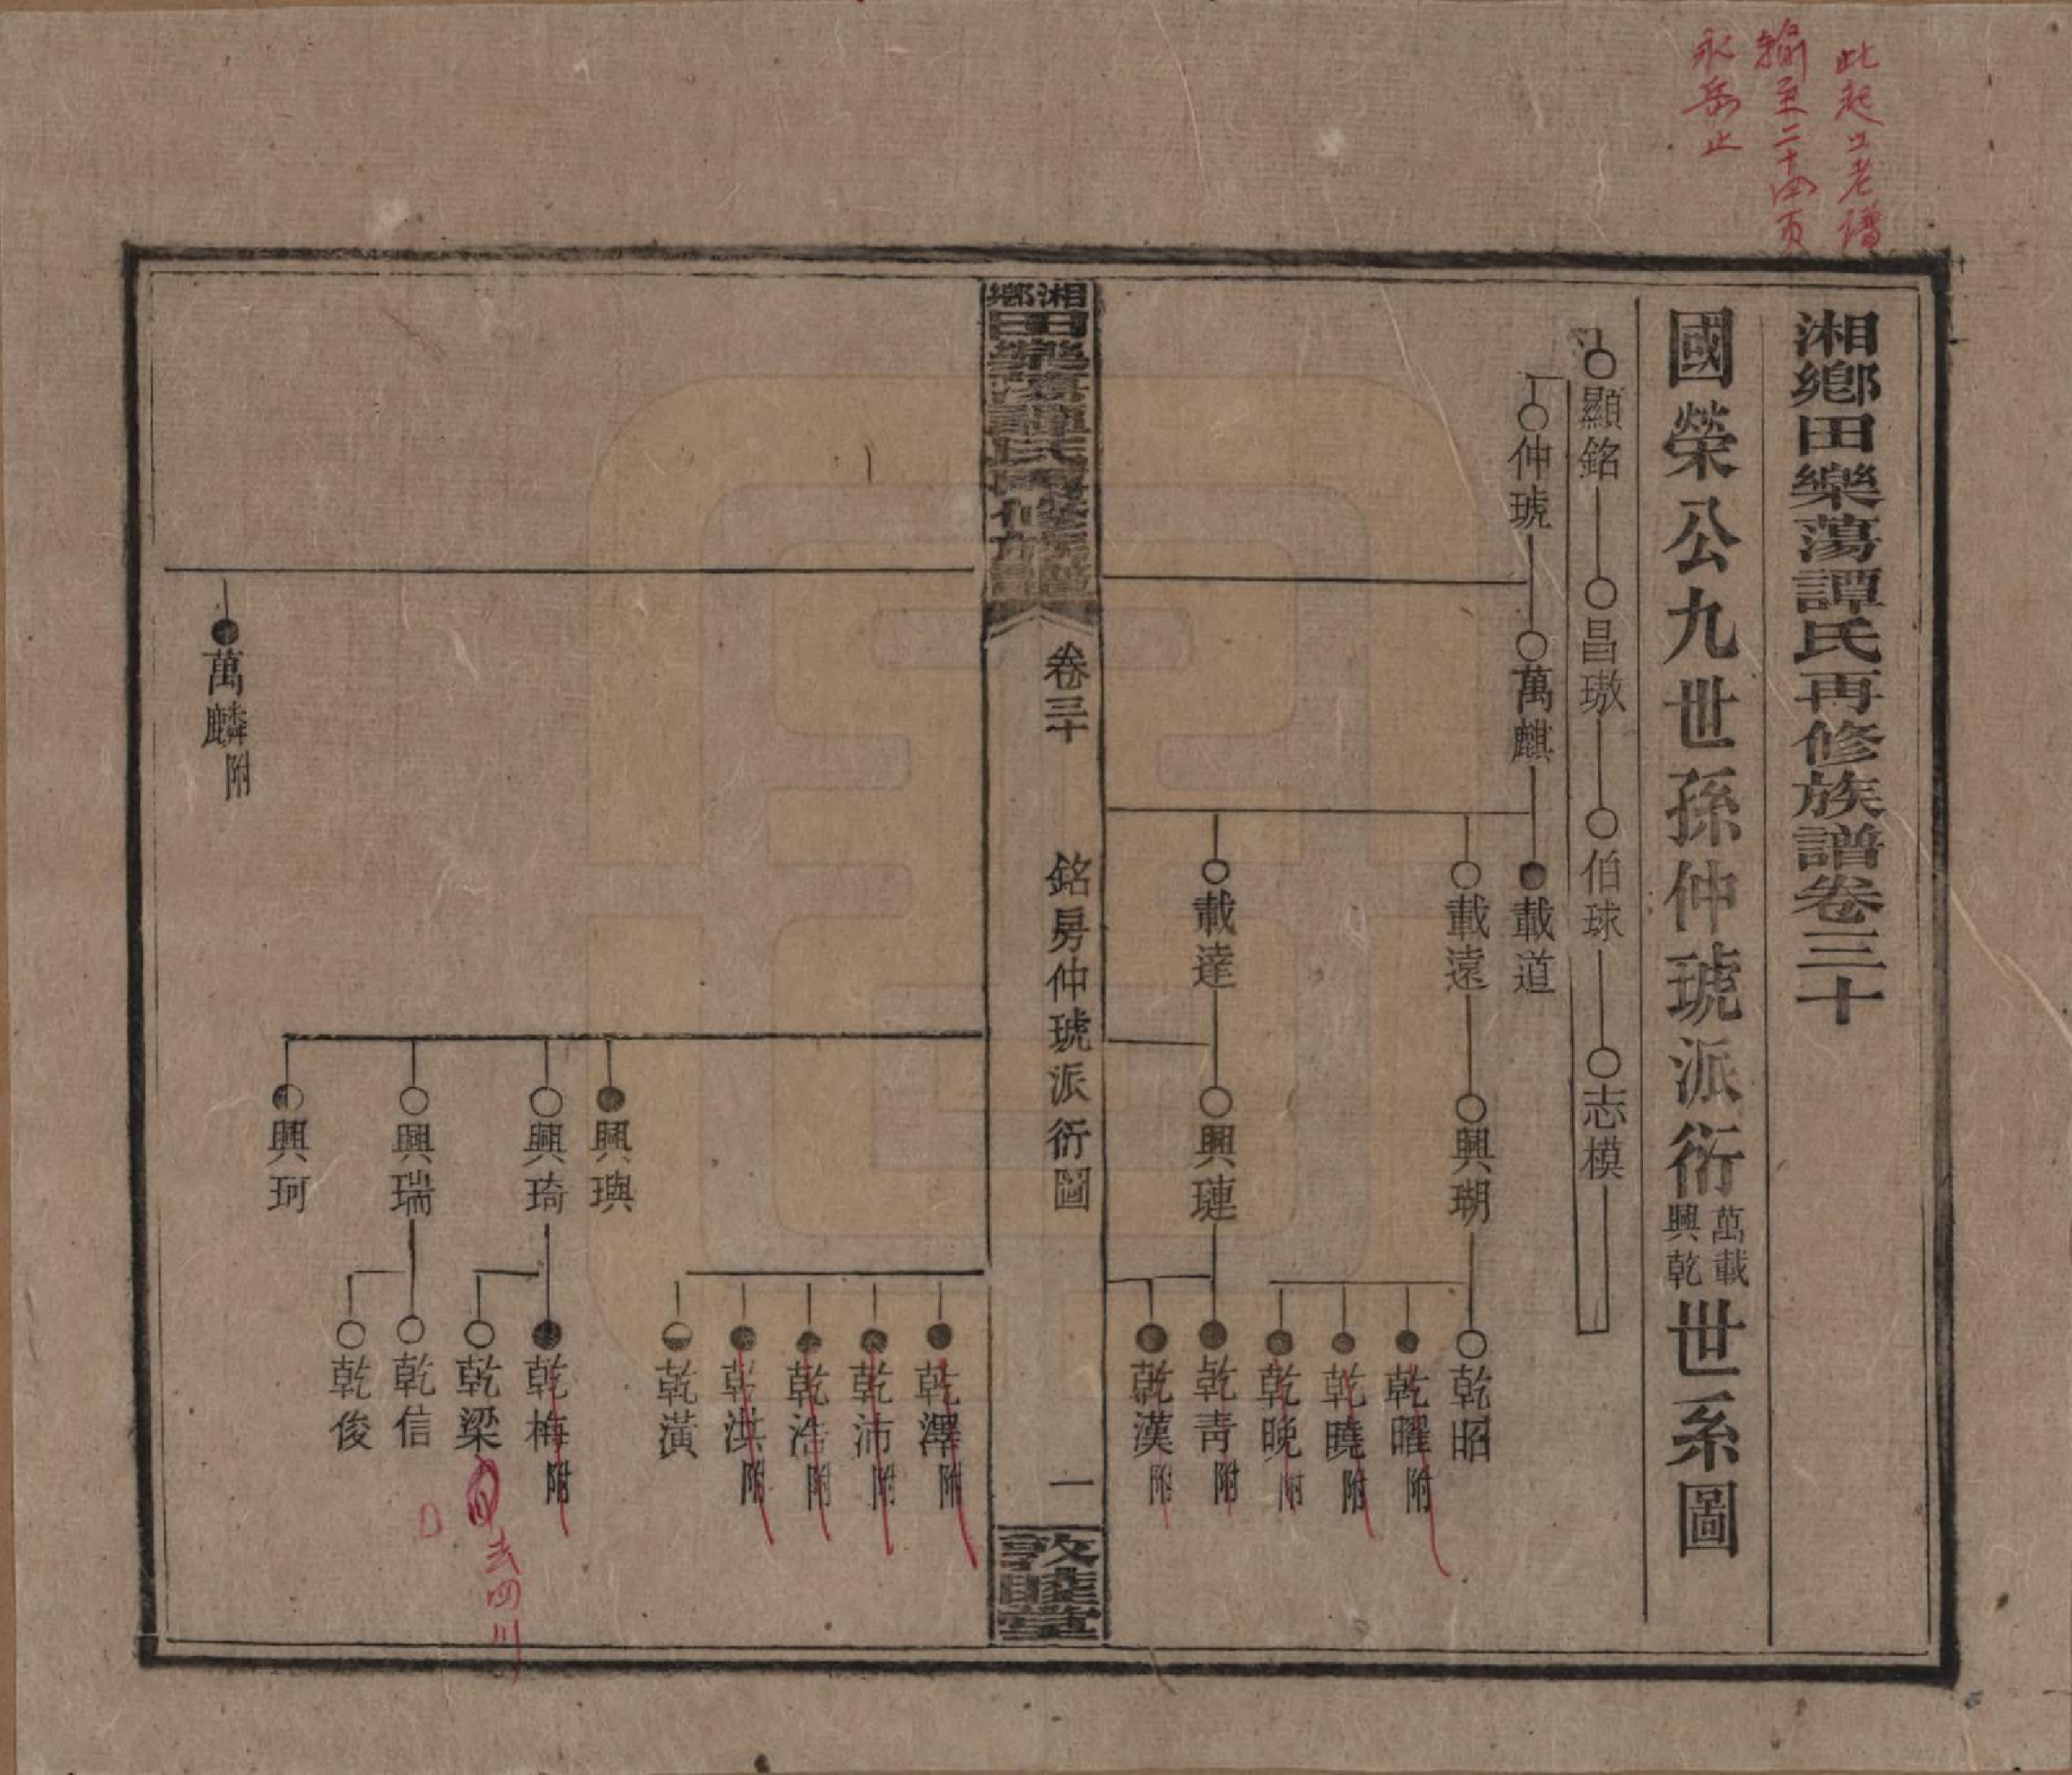 此起止老譜
輸至二十四頁
永岳止
湘鄉田樂蕩譚氏再修族譜卷三十
國榮公九世孫仲琥派衍萬載興乾世系圖
顯銘
昌璈
伯球
志模
仲琥
萬麒
載道
載遠
興瑚
乾昭
乾曜附
乾曉附
乾晚附
載達
興璉
乾青附
乾漢附
湘鄉田樂蕩譚氏再修族譜
卷三十
銘房仲琥派衍圖
一
敦睦堂
乾澤附
乾沛附
乾浩附
乾洪附
乾潢
興璵
興琦
乾梅附
乾梁
去四川
興瑞
乾信
乾俊
興珂
萬麟附